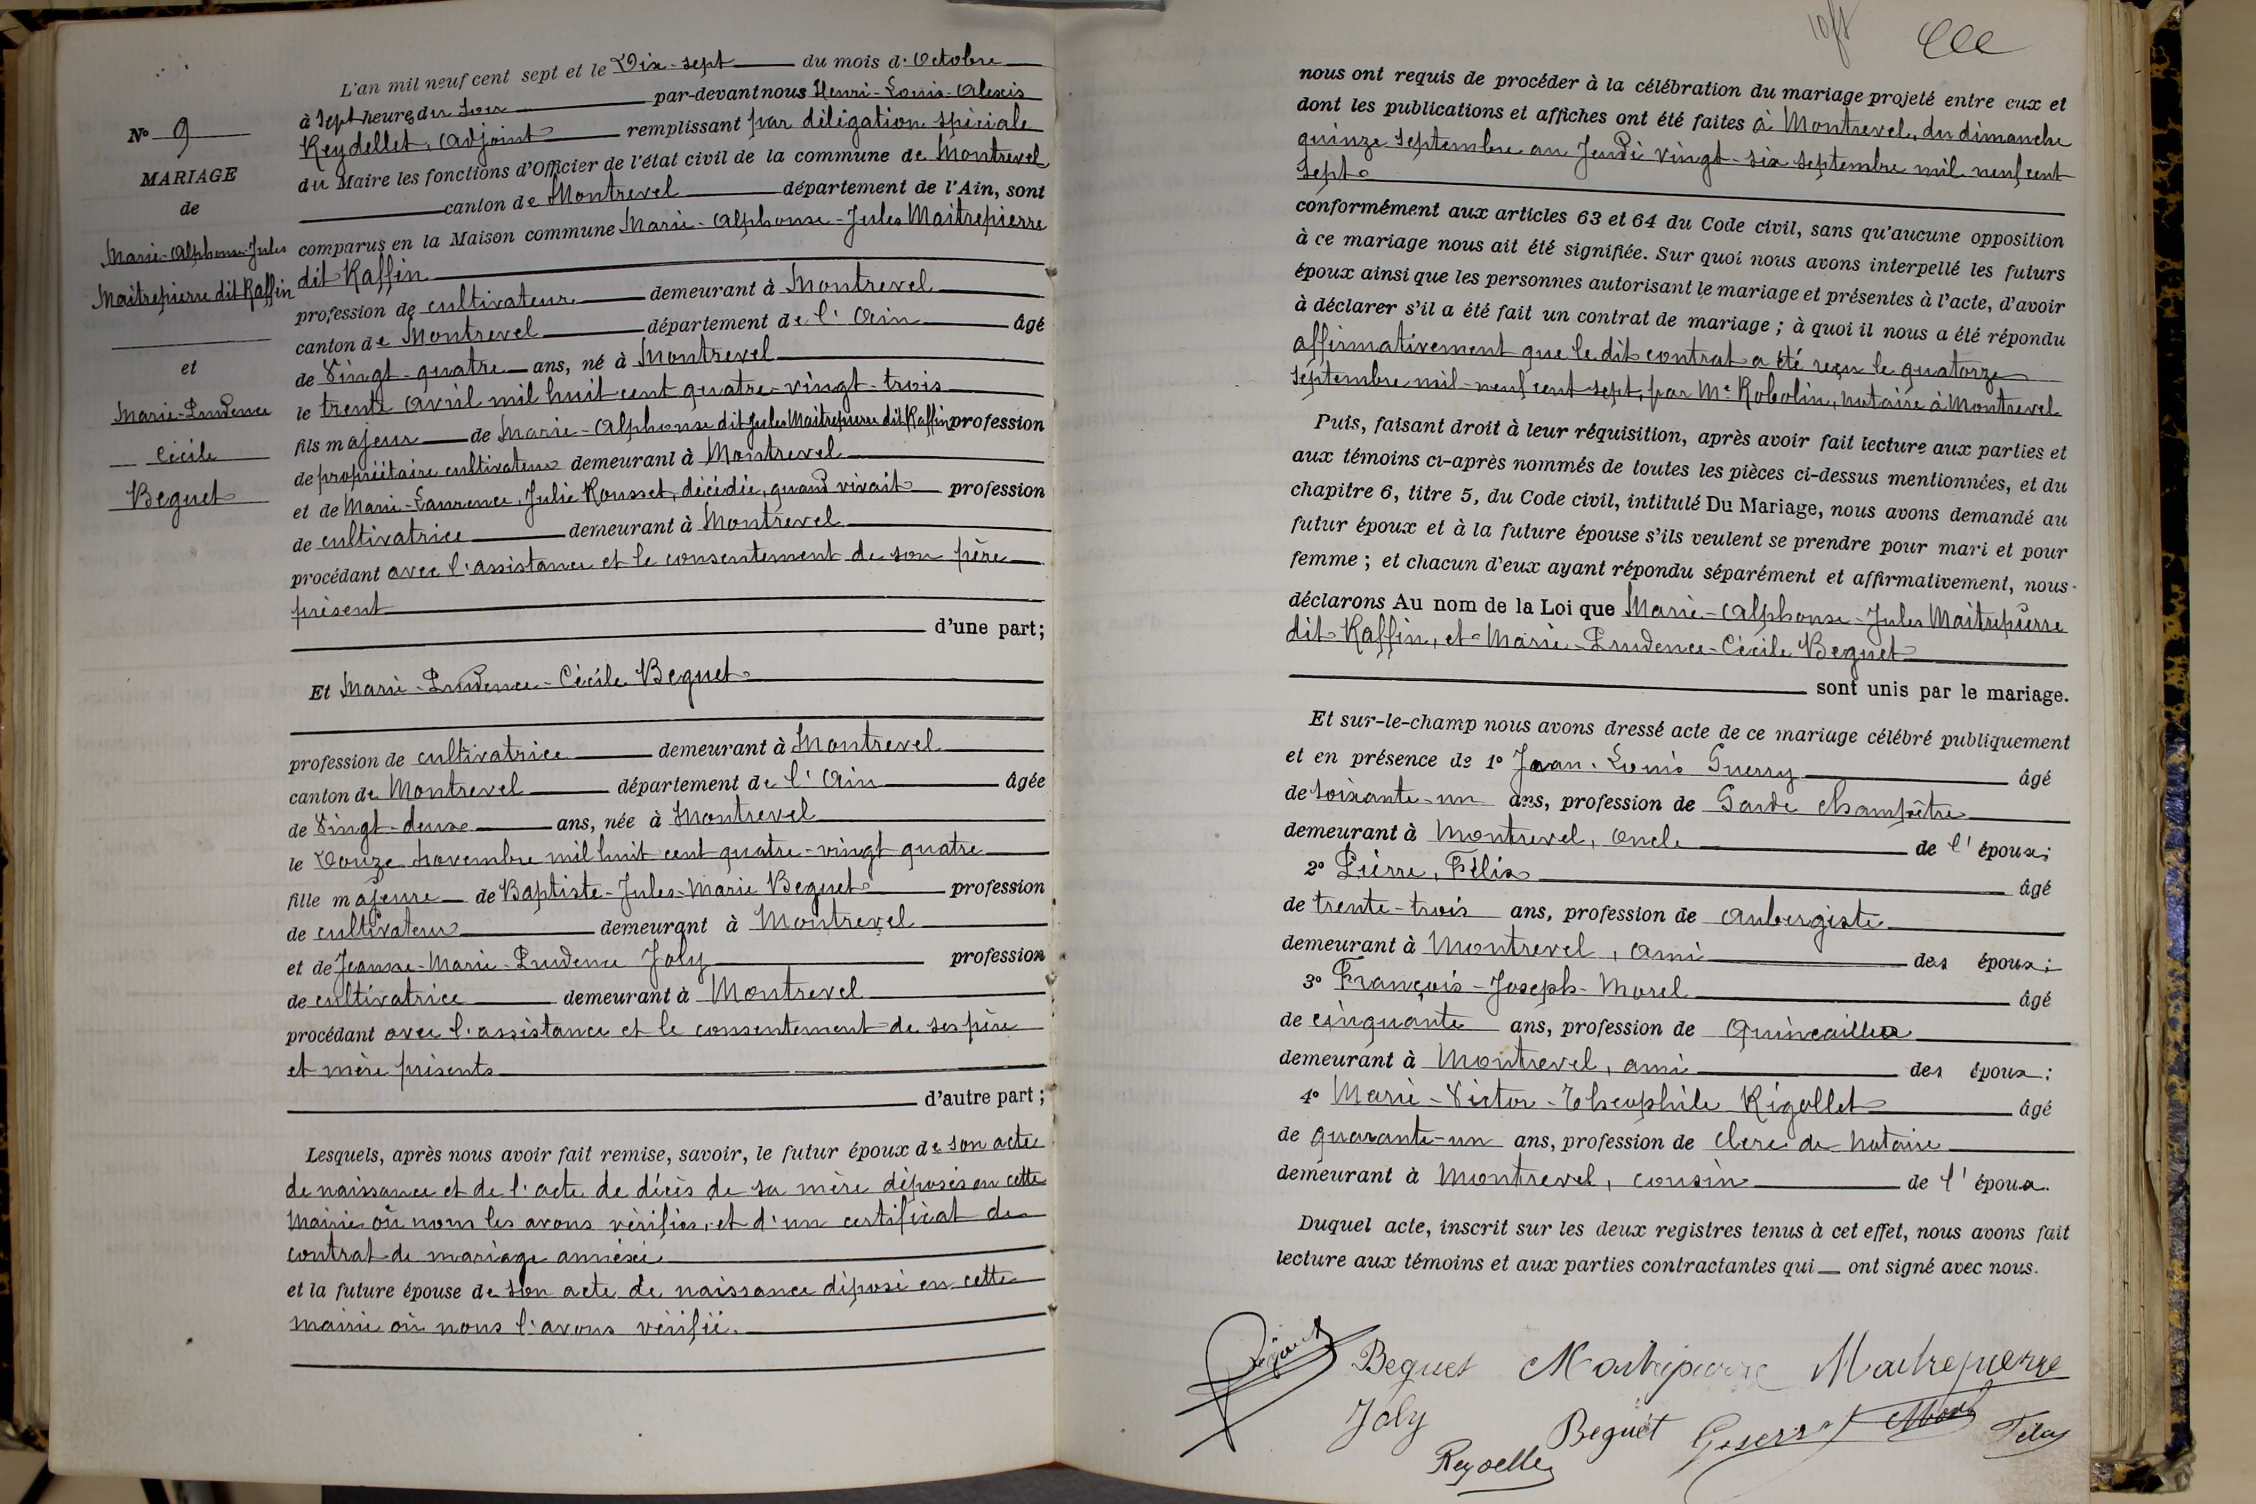 N° 9
MARIAGE
de
Marie-Alphonse-Jules
Maitrepierre dit Raffin
et
Marie-Prudence
Cécile
Beguet
L'an mil neuf cent sept et le Dix-sept du mois d. Octobre
à sept heures du soir par-devant nous Henri-Louis-Alexis
Reydellet, Adjoint remplissant par déligation spéciale
du Maire les fonctions d'Officier de l'état civil de la commune de Montrevel
canton de Montrevel département de l'Ain, sont
comparus en la Maison commune Marie-Alphonse-Jules Maitrepierre
dit Raffin
profession de cultivateur demeurant à Montrevel
canton de Montrevel département de l'Ain âgé
de Vingt-quatre ans, né à Montrevel
le trente avril mil huit cent quatre-vingt-trois
fils majeur de Marie-Alphonse dit Jules Maitrepierre dit Raffin profession
de propriétaire cultivateur demeurant à Montrevel
et de Marie-Laurence, Julie Rousset, décédée, quand vivait profession
de cultivatrice demeurant à Montrevel
procédant avec l'assistance et le consentement de son père
présent
d'une part;
Et Marie-Prudence-Cécile Beguet
profession de cultivatrice demeurant à Montrevel
canton de Montrevel département de l'Ain âgée
de Vingt-deux ans, née à Montrevel
le Douze novembre mil huit cent quatre-vingt quatre
fille majeure de Baptiste-Jules-Marie Beguet profession
de cultivateur demeurant à Montrevel
et de Jeanne-Marie-Prudence Joly profession
de cultivatrice demeurant à Montrevel
procédant avec l'assistance et le consentement de ses père
et mère présents
d'autre part;
Lesquels, après nous avoir fait remise, savoir, le futur époux de son acte
de naissance et de l'acte de décès de sa mère déposés en cette
mairie où nous les avons vérifiés, et d'un certificat de
contrat de mariage annexé
et la future épouse de son acte de naissance déposé en cette
mairie où nous l'avons vérifié.
nous ont requis de procéder à la célébration du mariage projeté entre eux et
dont les publications et affiches ont été faites à Montrevel, du dimanche
quinze septembre au Jeudi vingt-six septembre mil neuf cent
sept
conformément aux articles 63 et 64 du Code civil, sans qu'aucune opposition
à ce mariage nous ait été signifiée. Sur quoi nous avons interpellé les futurs
époux ainsi que les personnes autorisant le mariage et présentes à l'acte, d'avoir
à déclarer s'il a été fait un contrat de mariage; à quoi il nous a été répondu
affirmativement que le dit contrat a été reçu le quatorze
septembre mil-neuf cent-sept, par Me Robolin, notaire à Montrevel
Puis, faisant droit à leur réquisition, après avoir fait lecture aux parties et
aux témoins ci-après nommés de toutes les pièces ci-dessus mentionnées, et du
chapitre 6, titre 5, du Code civil, intitulé Du Mariage, nous avons demandé au
futur époux et à la future épouse s'ils veulent se prendre pour mari et pour
femme; et chacun d'eux ayant répondu séparément et affirmativement, nous
déclarons Au nom de la Loi que Marie-Alphonse-Jules Maitrepierre
dit Raffin, et Marie-Prudence-Cécile Beguet
sont unis par le mariage.
Et sur-le-champ nous avons dressé acte de ce mariage célébré publiquement
et en présence de 1° Jean-Louis Guerry âgé
de soixante-un ans, profession de Garde champêtre
demeurant à Montrevel, oncle de l'épouse;
2° Pierre, Félix âgé
de trente-trois ans, profession de aubergiste
demeurant à Montrevel, ami des époux;
3° François-Joseph-Morel âgé
de cinquante ans, profession de Quincailler
demeurant à Montrevel, ami des époux;
4° Marie-Victor-Théophile Rigollet âgé
de quarante-un ans, profession de clerc de notaire
demeurant à Montrevel, cousin de l'époux.
Duquel acte, inscrit sur les deux registres tenus à cet effet, nous avons fait
lecture aux témoins et aux parties contractantes qui ont signé avec nous.
Beguet Maitrepierre Maitrepierre
Joly Beguet Guerry Morel Félix
Reydellet